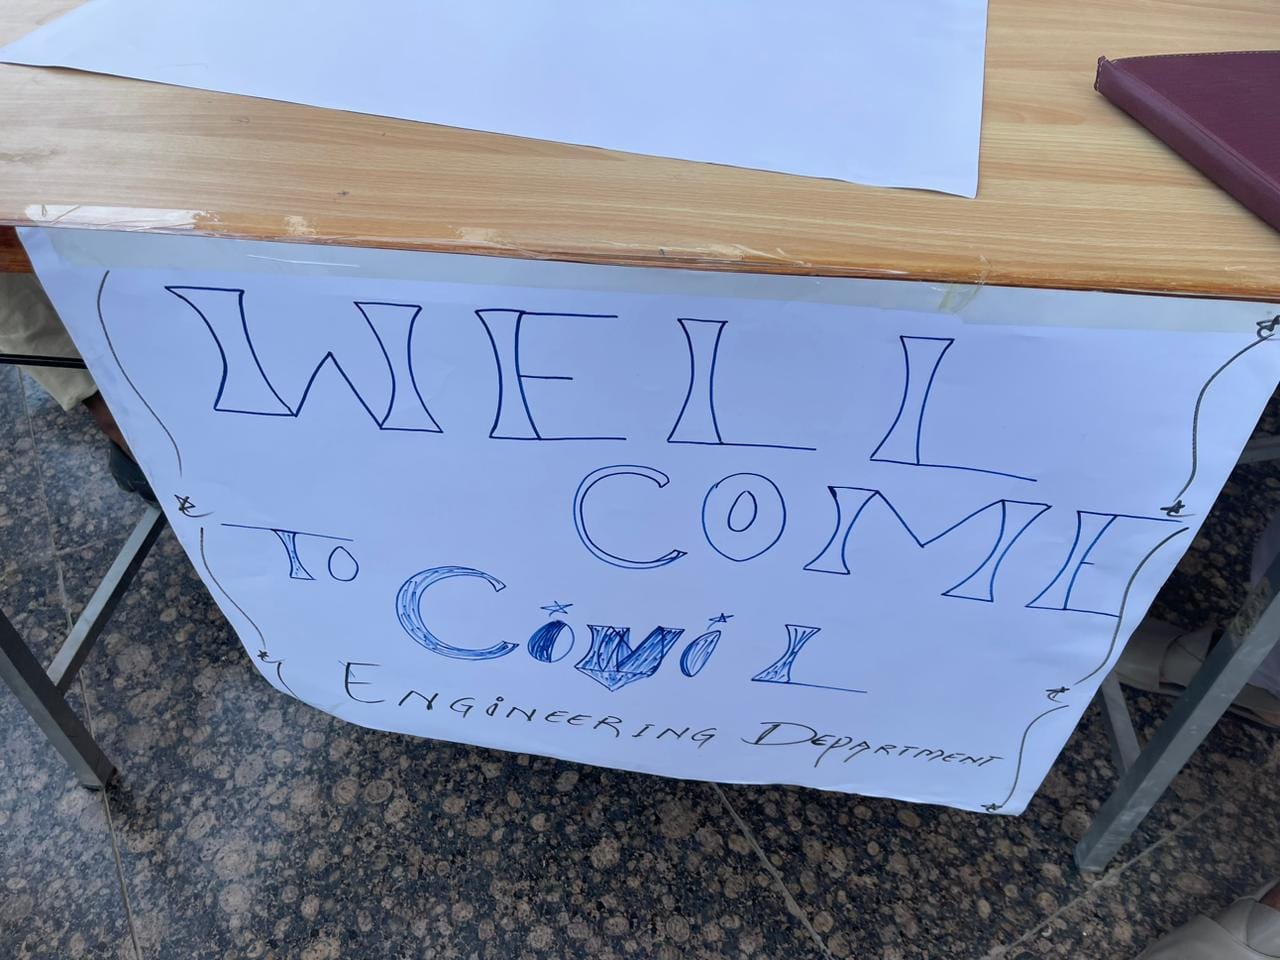 WELL
COME
TO CiviL
ENGiNEERING DEPARTMENT